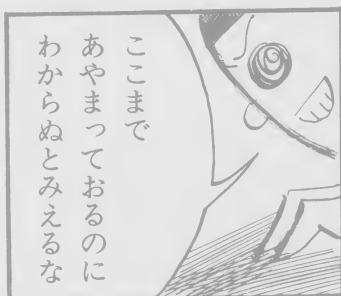 ここまで
あやまっておるのに
わからぬとみえるな